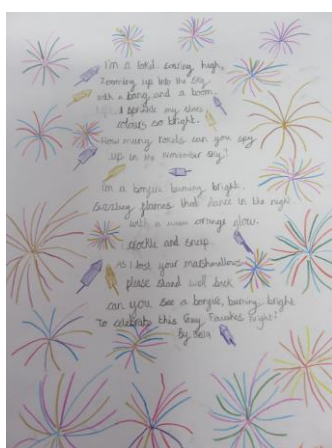 I'm a rokd soaring high,
Zooming up into the sky
with a bang and a boom.
I sprinkle my silver
colours so bright.
How many rokets can you spy
up in the november sky?
I'm a bonfire burning bright.
Sizzling flames that dance in the night
with a warm orange glow.
I crackle and snap.
As I tost your marshmallows
please stand well back
can you see a bongire, burning bright
To celebrate this Guy Fawakes night?
By